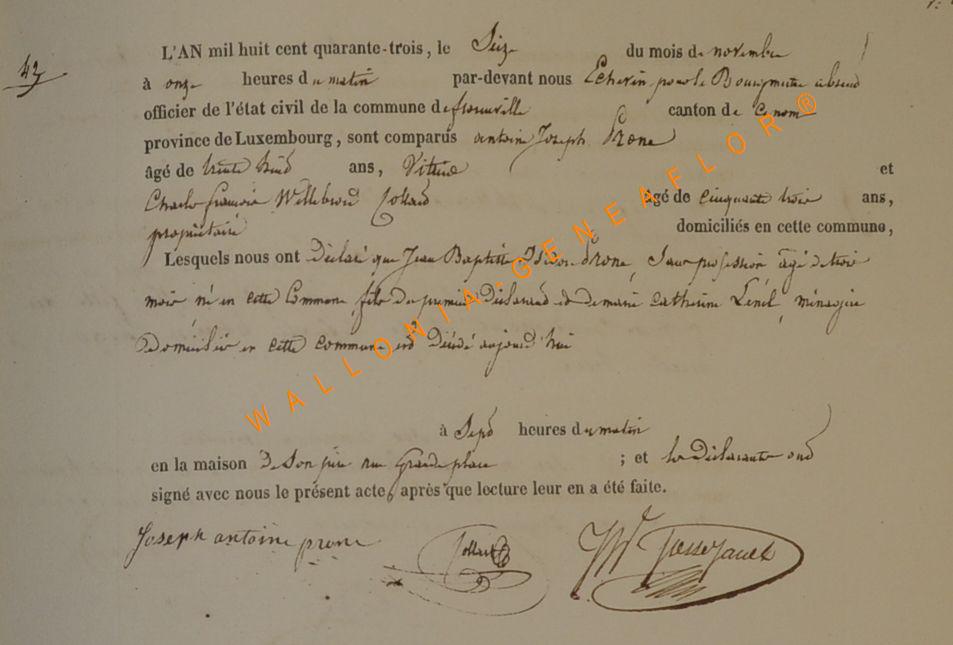 42
L'AN mil huit cent quarante-trois, le Seize du mois de novembre
à onze heures du matin par-devant nous Echevin pour le Bourgmestre absent
officier de l'état civil de la commune de canton de ce nom
province de Luxembourg, sont comparus antoine Joseph Prone
âgé de trente huit ans, Vitrier et
Charles françois Willebrord Collard âgé de cinquante trois ans,
propriétaire domiciliés en cette commune,
Lesquels nous ont déclaré que Jean Baptiste Prone, Sans profession âgé de trois
mois né en cette Commune fils du premier Déclarant et de marie catherine ménagère
Domiciliée en cette commune est Décédé aujourd'hui
à Sept heures du matin
en la maison de Son père rue Grande place ; et les Déclarants ont
signé avec nous le présent acte, après que lecture leur en a été faite.
Joseph antoine prone Collard
WALLONIA-GENEAFLOR®